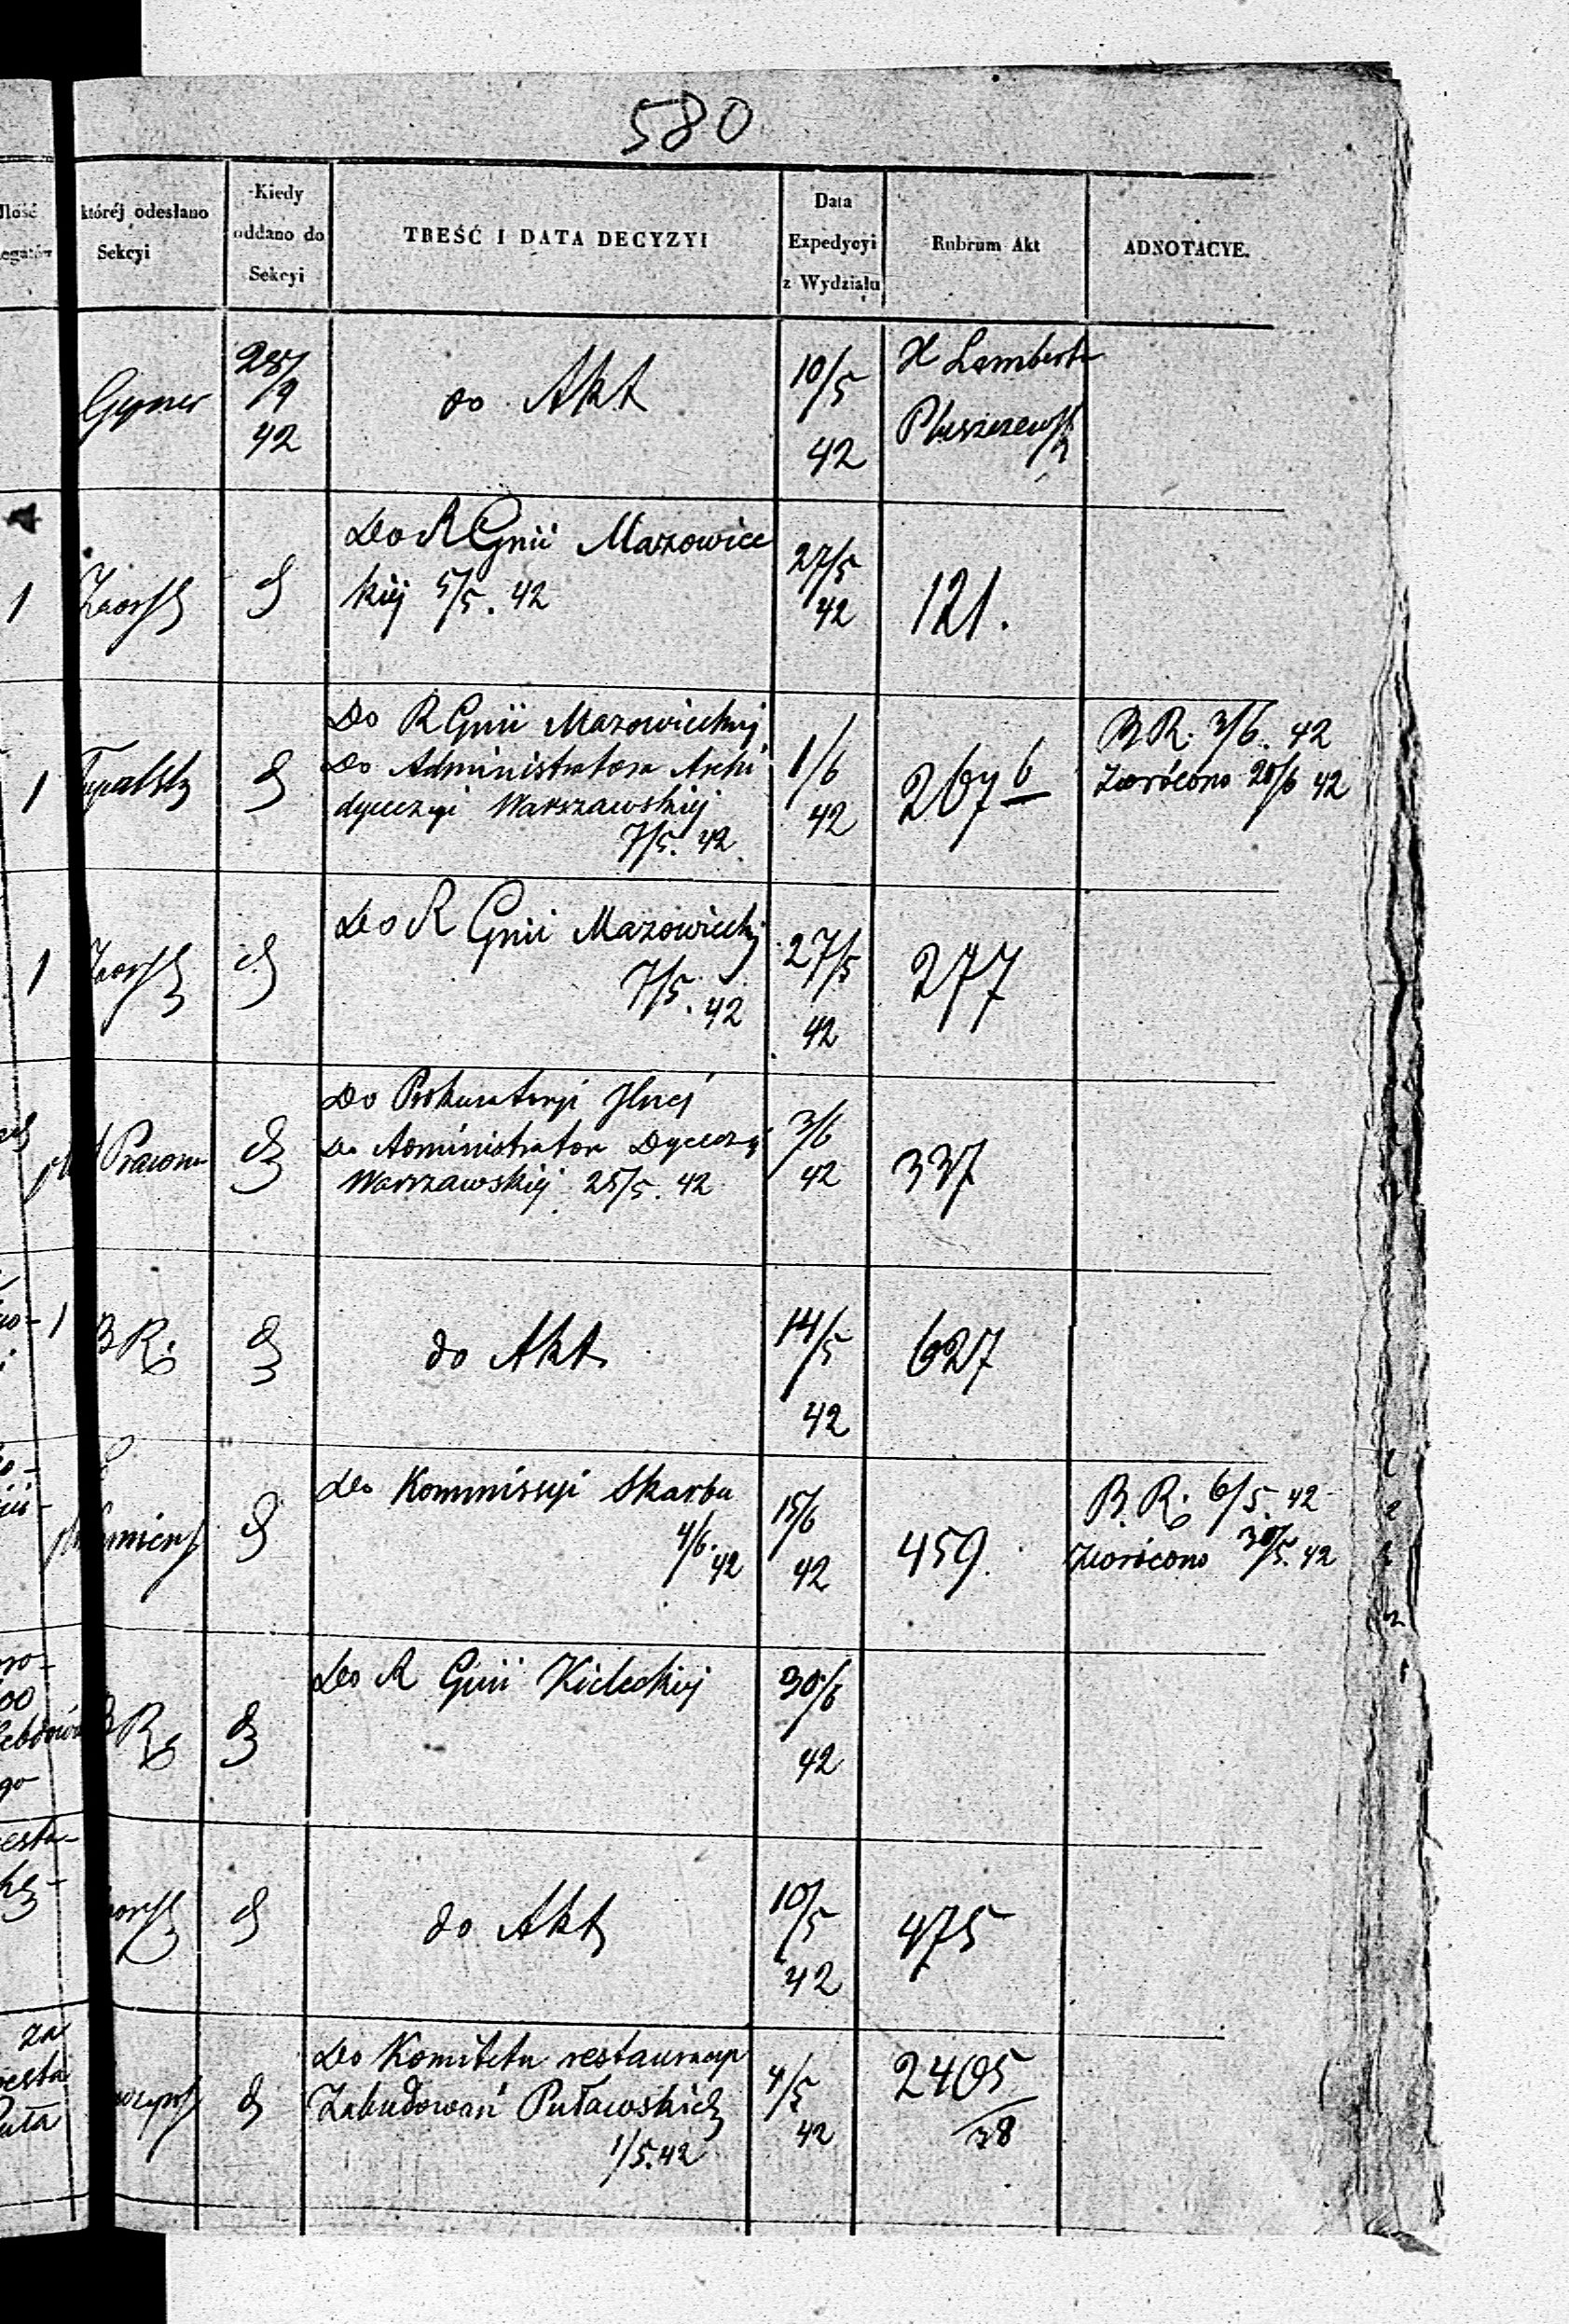 580
któréj odesłano
Sekcyi
Kiedy
oddano do
Sekcyi
TREŚĆ I DATA DECYZYI
Data
Expedycyi
z Wydziału
Rubrum Akt
ADNOTACYE.
42
do Akt
10/5
42
X Lamberta
1
Do R Gnii Mazowiec
kiej 5/5. 42
27/5
42
121.
1
Do R Gnii Mazowieckiej
Do Administratora Archi
dyecezyi Warszawskiej
7/5. 42
1/6
42
267 b
B R. 3/6. 42
Zwrócono 20/6 42
1
Do R Gnii Mazowieckiej
7/5. 42
27/5
42
277
Do Prokuratoryi
Do Administratora Dyecezyi
Warszawskiej 25/5. 42
3/6
42
337
1
B R.
do Akt
14/5
42
627
Do Kommissyi Skarbu
4/6. 42
15/6
42
459.
B. R. 6/5. 42
Zwrócono 30/5. 42
B R.
Do R Gnii Kieleckiej
30/6
42
do Akt
10/5
42
475
Do Komitetu restauracyi
Zabudowań Puławskich
1/5. 42
4/5
42
2405
/38